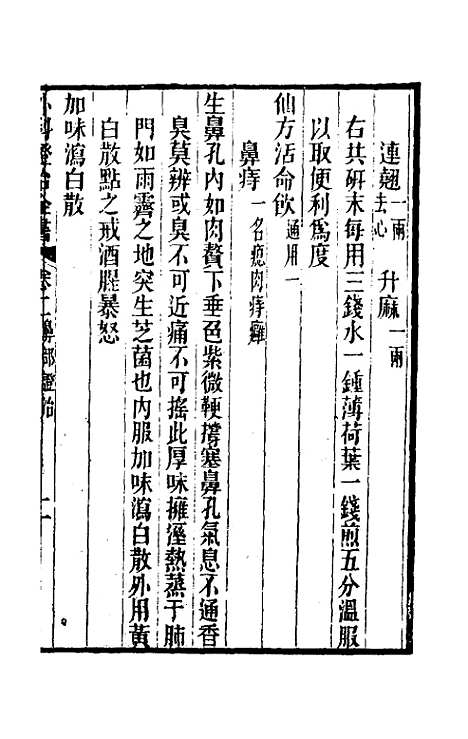 連翹一兩去心　升麻一兩
右共研末每用三錢水一鍾薄荷葉一錢煎五分溫服
以取便利爲度
仙方活命飲通用一
鼻痔一名瘜肉痔癰
生鼻孔內如肉贅下垂色紫微硬撐塞鼻孔氣息不通香
臭莫辨或臭不可近痛不可搖此厚味擁溼熱蒸于肺
門如雨霽之地突生芝菌也內服加味瀉白散外用黃
白散點之戒酒腥暴怒
加味瀉白散
外科證治全書　卷二鼻部證治　二